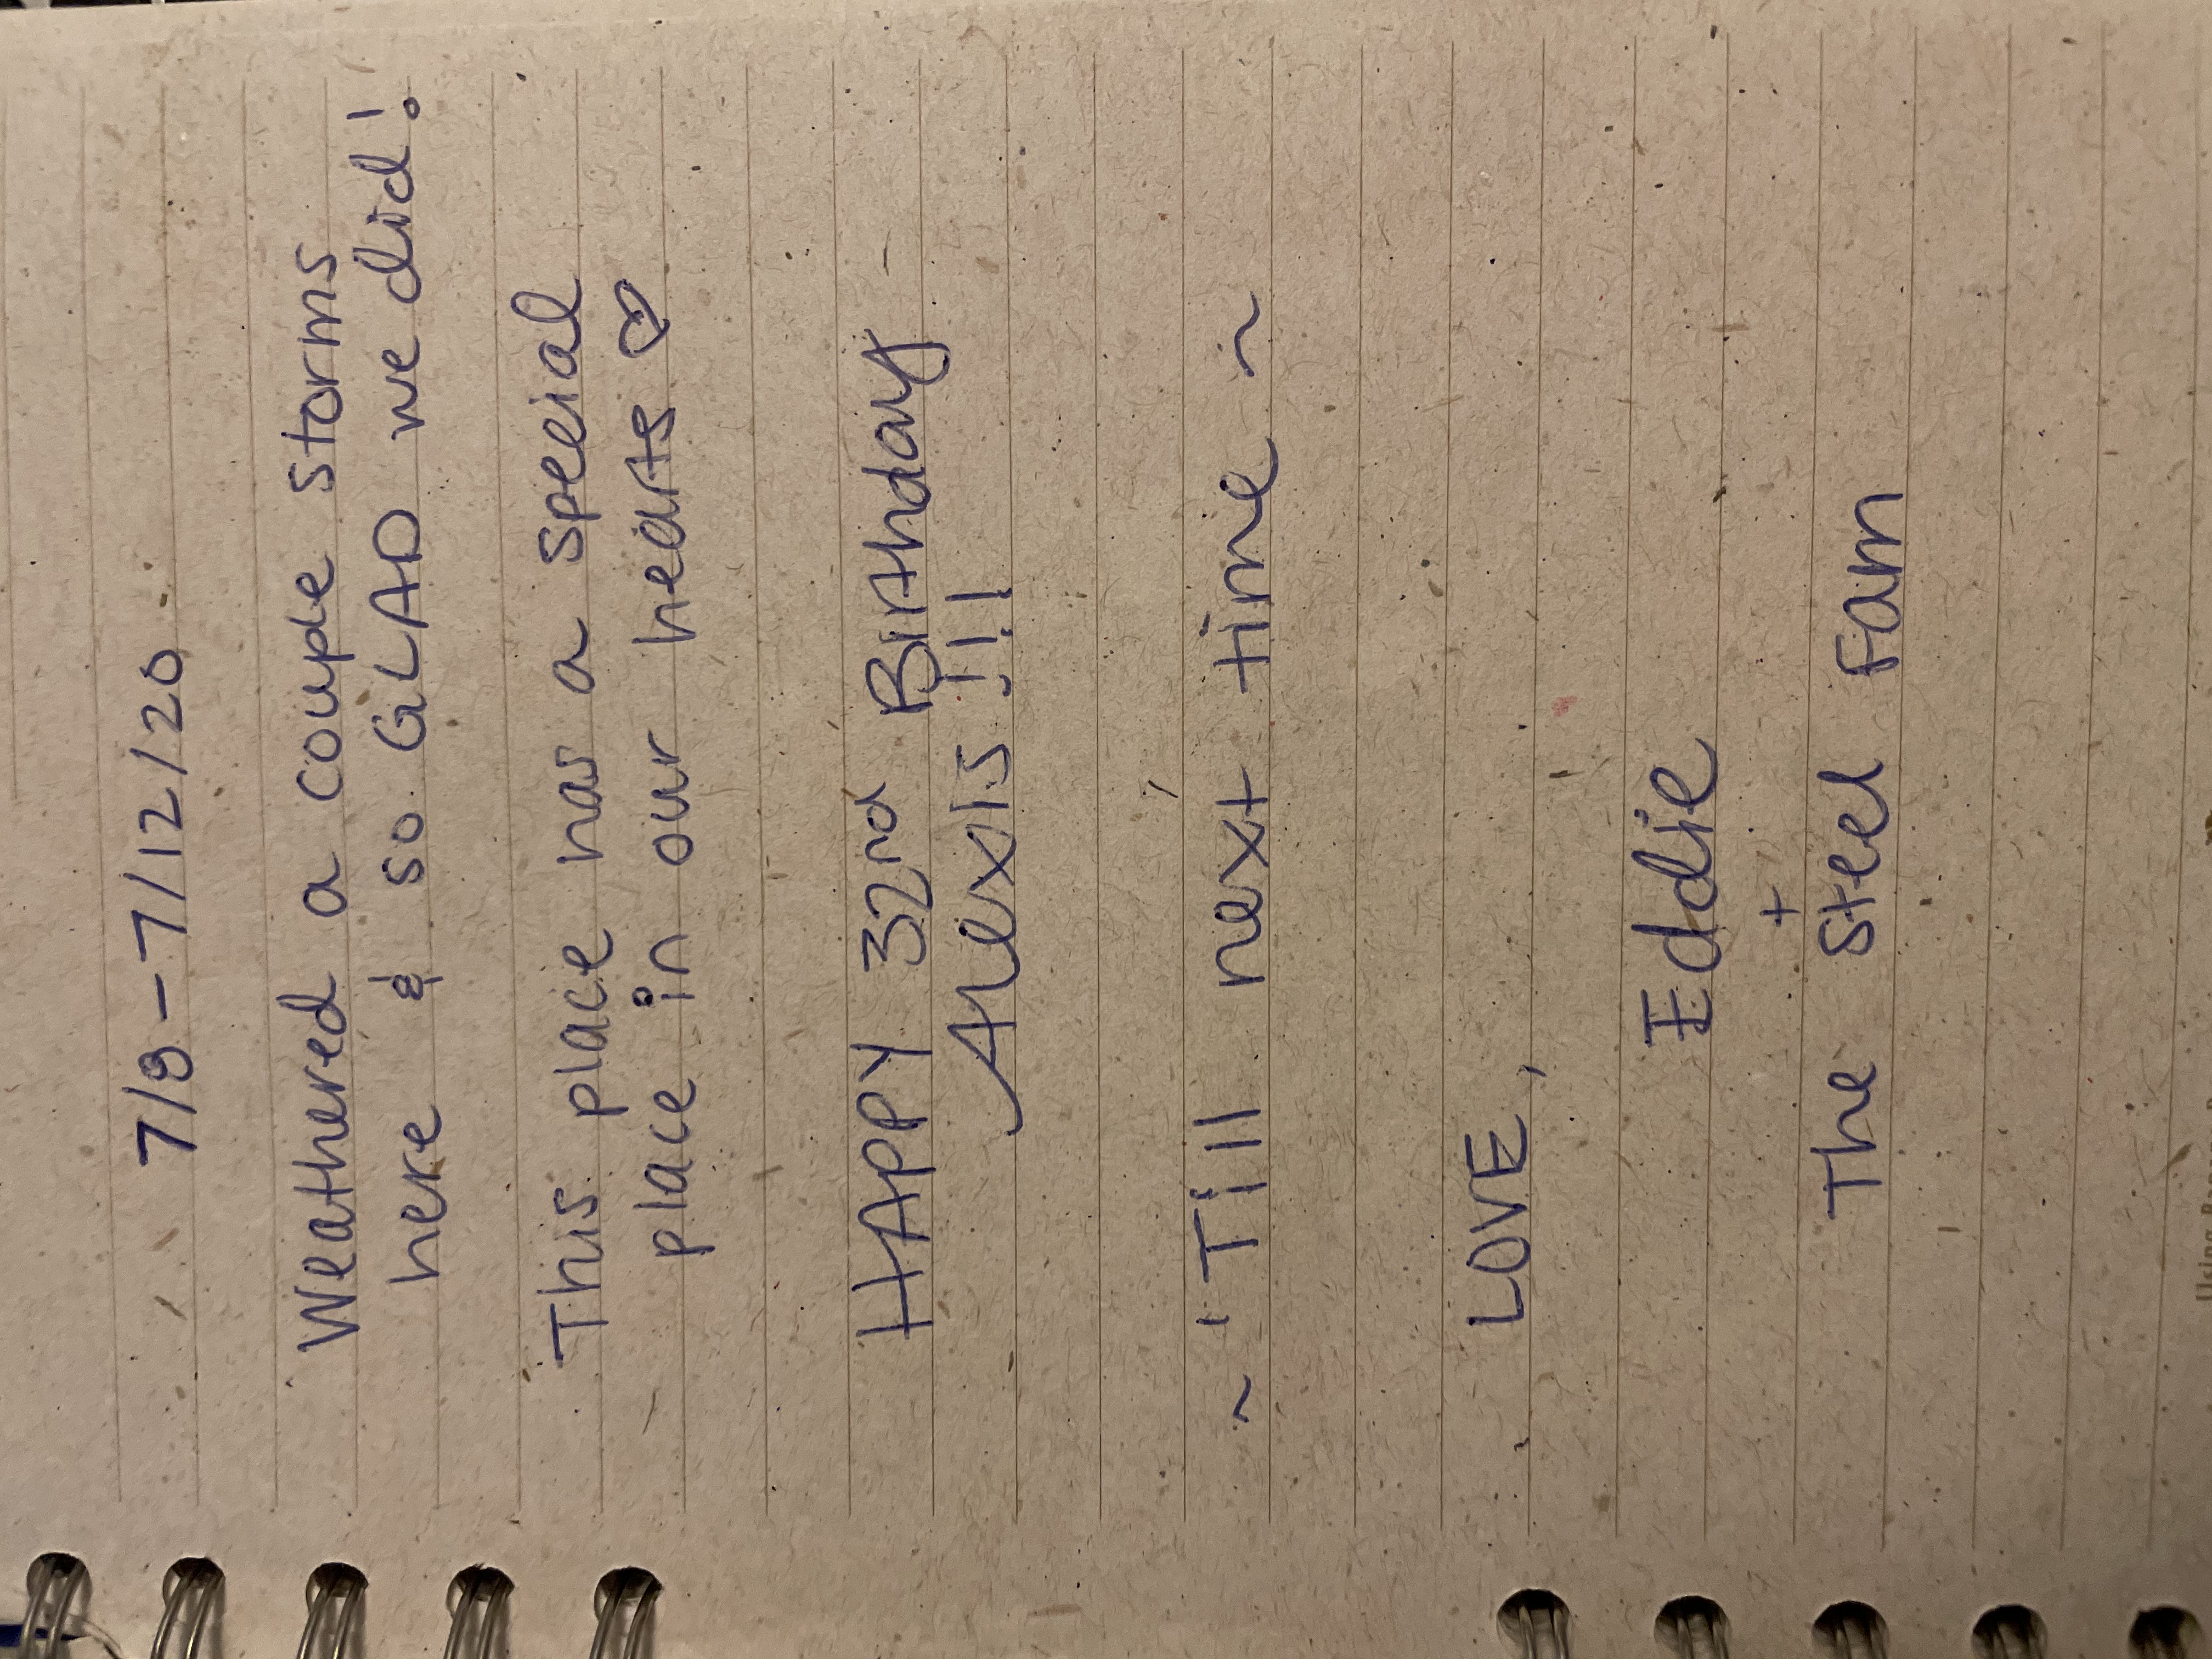 7/8 - 7/12/20
Weathered a couple storms
here & so GLAD we did!
This place has a special
place in our hearts ♡
HAPPY 32nd Birthday
Alexis!!!
~ 'Till next time ~
LOVE,
Eddie
+
The Steel Fam
Using Banana